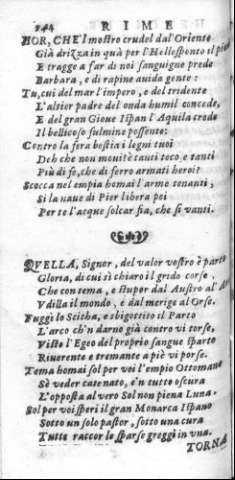 244 RIME
HOR, CHE'l mostro crudel dal'Oriente
Già drizza in quà per l'Hellesponto il pie
E tragge a far di noi sanguigne prede
Barbara, e di rapine auida gente:
Tu, cui del mar l'impero, e del tridente
L'altier padre del'onda humil concede,
E del gran Gioue Ispan l'Aquila crede
Il bellicoso fulmine possente:
Contro la fera bestia i legni tuoi
Deh che non moui? è tanti teco e tanti
Più di fè, che di ferro armati heroi?
Scocca nel'empia homai l'arme tonanti,
Sì la naue di Pier libera poi
Per te l'acque solcar fia, che si vanti.
QVELLA, Signor, del valor vostro è parto
Gloria, di cui sì chiaro il grido corse,
Che con tema, e stupor dal Austro al'A
Vdilla il mondo, e dal merige al'Orse.
Fuggì lo Scitha, e sbigottito il Parto
L'arco ch'n darno già contro vi torse,
Visto l'Egeo del proprio sangue sparto
Riuerente e tremante a piè vi porse.
Tema homai sol per voi l'empio Ottomano
Sè veder catenato, e'n tutto oscura
L'opposta al vero Sol non piena Luna.
Sol per voi speri il gran Monarca Ispano
Sotto un solo pastor, sotto una cura
Tutte raccor le sparse greggi in vna.
TORNA